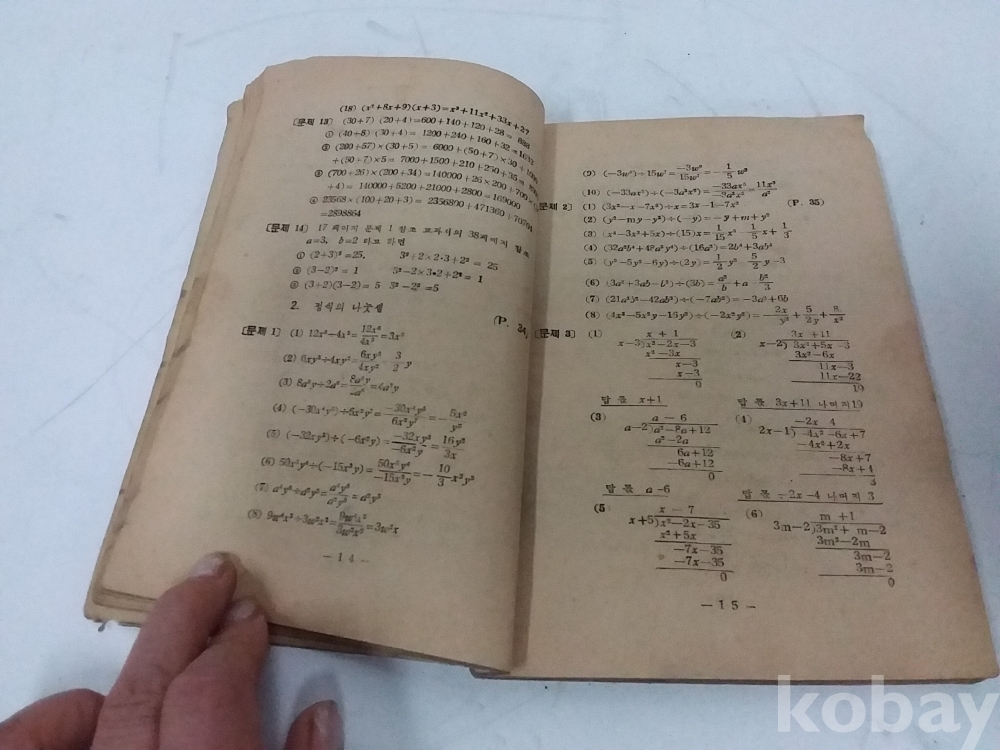 (18) (x²+8x+9)(x+3)=x³+11x²+33x+27
[문제 13) (30+7) (20+4)=600+140+120+28= 888
① (40+8) (30+4)= 1200+240+160+32=1632
② (200+57)×(30+5)= 6000+(50+7)×30
+(50+7)×5= 7000+1500+210+250+35=
③ (700+26)×(200+34)=140000+26×200+700×
+4)= 140000+5200+21000+2800=169000
④ 23568×(100+20+3)= 2356800+471360+70704
=2898864
[문제 14) 17 페이지 문제 1 참조 교과서의 38페이지 참조
a=3, b=2 라고 하면
① (2+3)²=25, 3²+2×2·3+2² = 25
② (3-2)²= 1 3²-2×3•2+2² = 1
③ (3+2)(3-2)= 5 3²-2²=5
2. 정식의 나눗셈
(P. 34)
[문제 1] (1) 12x⁴÷4x³=12x⁴/4x³=3x
(2) 6xy³÷4xy²=6xy³/4xy²=3/2 y
(3) 8a³y÷2a²=8a³y/2a²=4a³y
(4) (-30x⁴y⁵)÷6x²y⁷=-30x⁴y⁵/6x²y⁷=-5x²/y²
(5) (-32xy³)÷(-6x²y)=-32xy³/-6x²y=16y²/3x
(6) 50x⁵y⁴÷(-15x³y)=50x⁵y⁴/-15x³y=-10/3 x²y³
(7) a⁴y⁵÷a²y²=a⁴y⁵/a²y²=a²y³
(8) 9w⁴x³÷3w³x²=9w⁴x³/3w³x²=3wx
— 14 —
(9) (-3w⁹)÷15w⁷=-3w⁹/15w⁷=-1/5 w²
(10) (-33ax⁵)÷(-3a³x²)=-33ax⁵/-3a³x²=11x³/a²
[문제 2] (1) (3x²-x-7x³)÷x=3x-1-7x² (P. 35)
(2) (y²-my-y³)÷(-y)=-y+m+y²
(3) (x⁴-3x²+5x)÷(15)x=1/15 x³-1/5 x+1/3
(4) (32a²b⁴+48a³y⁴)÷(16a²)=2b⁴+3ab⁴
(5) (y³-5y²-6y)÷(2y)=1/2 y²-5/2 y-3
(6) (3a²+3ab-b³)÷(3b)=a²/b+a-b²/3
(7) (21a³b²-42ab³)÷(-7ab²)=-3a²+6b
(8) (4x³-5x²y-16y³)÷(-2x²y²)=-2x/y²+5/2y+8/x²
[문제 3] (1) x + 1 (2) 3x +11
x-3)x²-2x-3 x-2)3x²+5x-3
x²-3x 3x²-6x
x-3 11x-3
x-3 11x-22
0 19
답 몫 x+1 답 몫 3x+11 나머지19
(3) a - 6 (4) -2x 4
a-2)a²-8a+12 2x-1)-4x²-6x+7
a²-2a -4x²+2x
6a+12 -8x+7
-6a+12 -8x+4
0 3
답 몫 a-6 답 몫 -2x-4 나머지 3
(5 x - 7 (6) m +1
x+5)x²-2x-35 3m-2)3m²+ m-2
x²+5x 3m²-2m
-7x-35 3m-2
-7x-35 3m-2
0 0
— 15 —
kobay